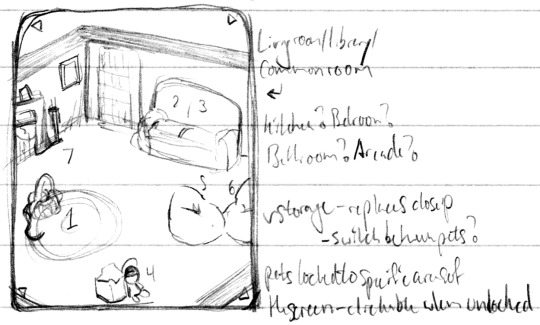 Livingroom/library/
Commonroom
2, 3
Kitchen? Bedroom?
Bathroom? Arcade?
7
5
6
1
storage - replaces closeup
- switch between pets?
4
pets locked to specific areas of
the screen - clickable when unlocked